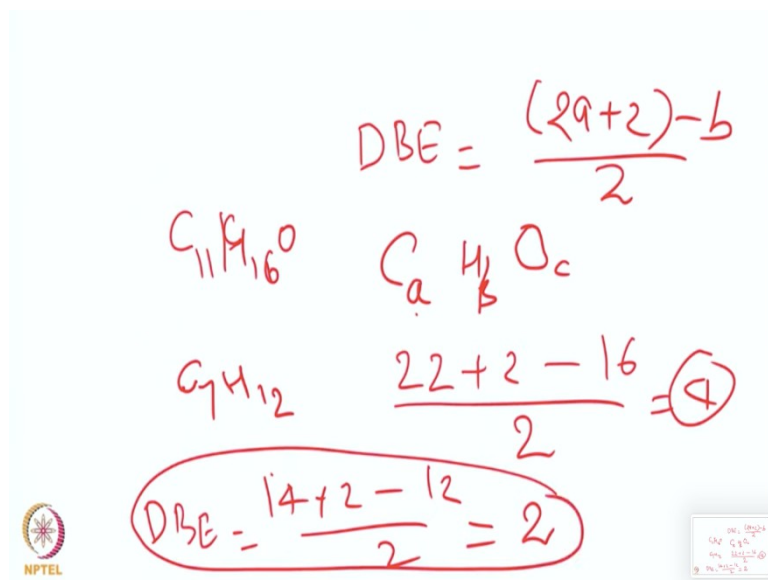 DBE = (2a+2)-b / 2
C11H16O CaHbOc
C7H12 22+2-16 / 2 = 4
DBE = 14+2-12 / 2 = 2
NPTEL